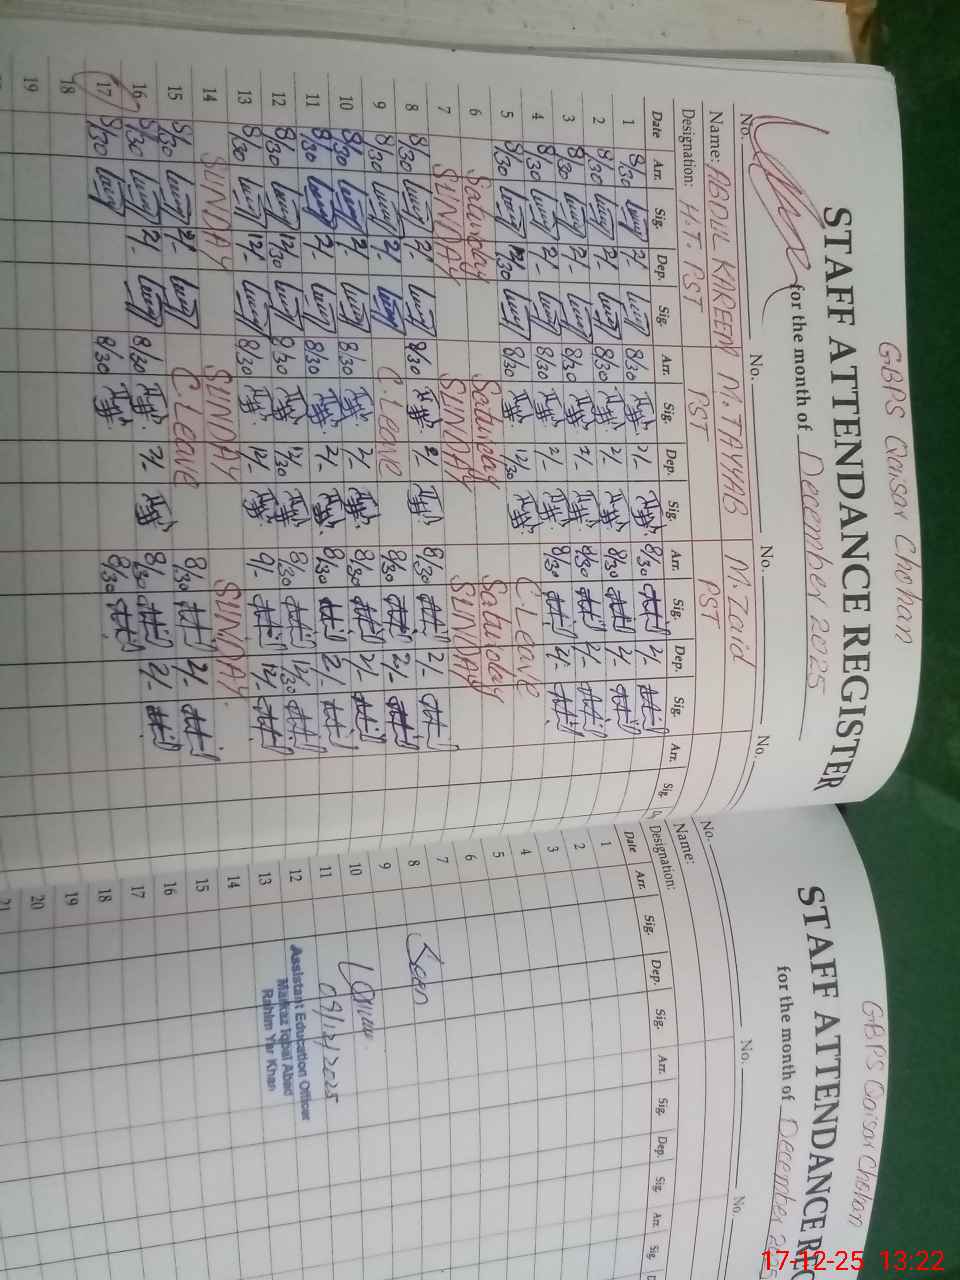 GBPS Qaisar Chohan
STAFF ATTENDANCE REGISTER
for the month of December 2025
No. No. No. No.
Name: ABDUL KAREEM M. TAYYAB M. Zaid
Designation: H.T. PST PST PST
Date Arr. Sig. Dep. Sig. Arr. Sig. Dep. Sig. Arr. Sig. Dep. Sig. Arr. Sig.
1 8/30 2/- 8/30 2/- 8/30 2/-
2 8/30 2/- 8/30 2/- 8/30 2/-
3 8/30 2/- 8/30 2/- 8/30 2/-
4 8/30 2/- 8/30 2/- 8/30 2/-
5 8/30 12/30 8/30 12/30 C.Leave
6 Saturday Saturday Saturday
7 SUNDAY SUNDAY SUNDAY
8 8/30 2/- 8/30 2/- 8/30 2/-
9 8/30 2/- C.Leave 8/30 2/-
10 8/30 2/- 8/30 2/- 8/30 2/-
11 8/30 2/- 8/30 2/- 8/30 2/-
12 8/30 12/30 8/30 12/30 8/30 12/30
13 8/30 12/- 8/30 12/- 9/- 12/-
14 SUNDAY SUNDAY SUNDAY
15 8/30 2/- C.Leave 8/30 2/-
16 8/30 2/- 8/30 2/- 8/30 2/-
17 8/30 8/30 8/30
18
19
GBPS Qaisar Chohan
STAFF ATTENDANCE REG
for the month of December 2025
No. No. No.
Name:
Designation:
Date Arr. Sig. Dep. Sig. Arr. Sig. Dep. Sig. Arr. Sig.
1
2
3
4
5
6
7
8 Seen
9
10
11 09/12/2025
12 Assistant Education Officer
Markaz Iqbal Abad
13 Rahim Yar Khan
14
15
16
17
18
19
20
21
17-12-25 13:22